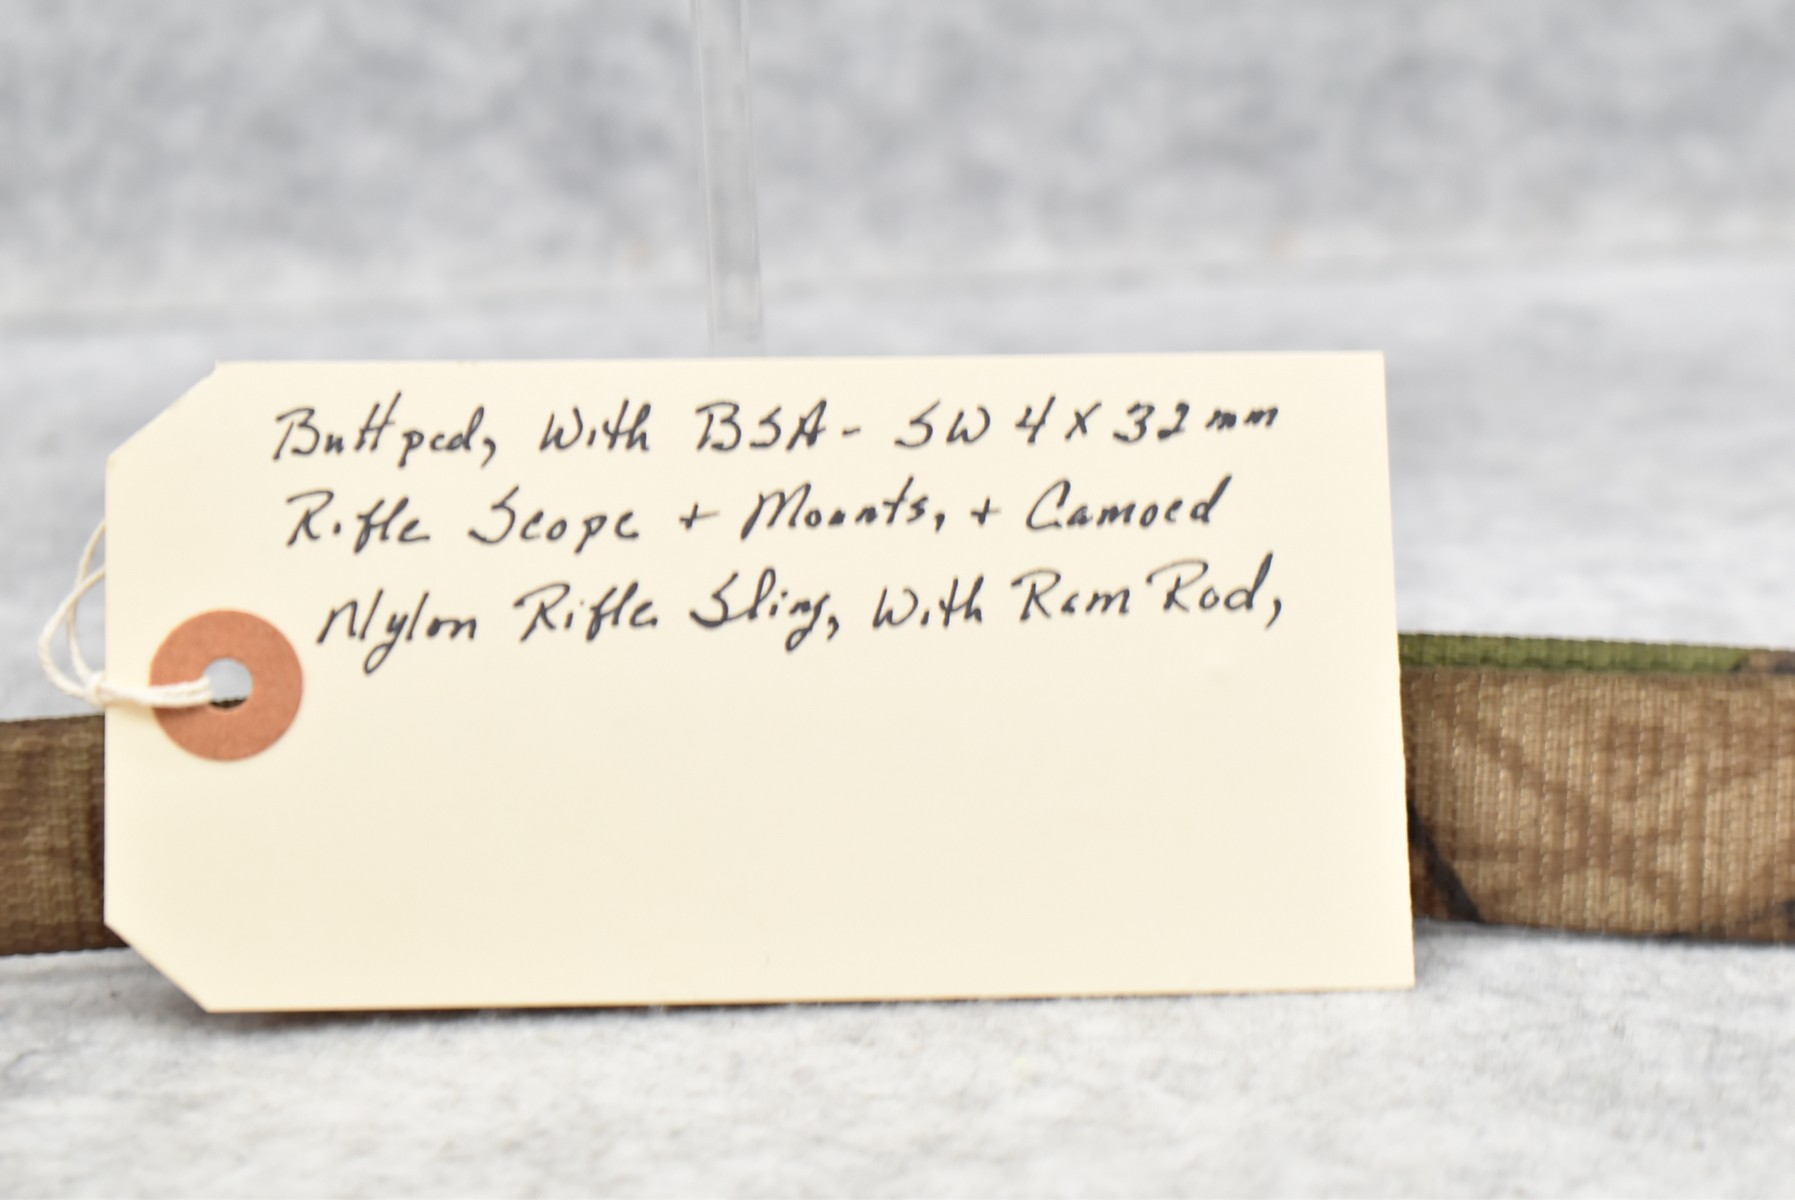 Buttpad, With BSA - SW 4 X 32mm
Rifle Scope + Mounts, + Camoed
Nylon Rifle Sling, With Ram Rod,